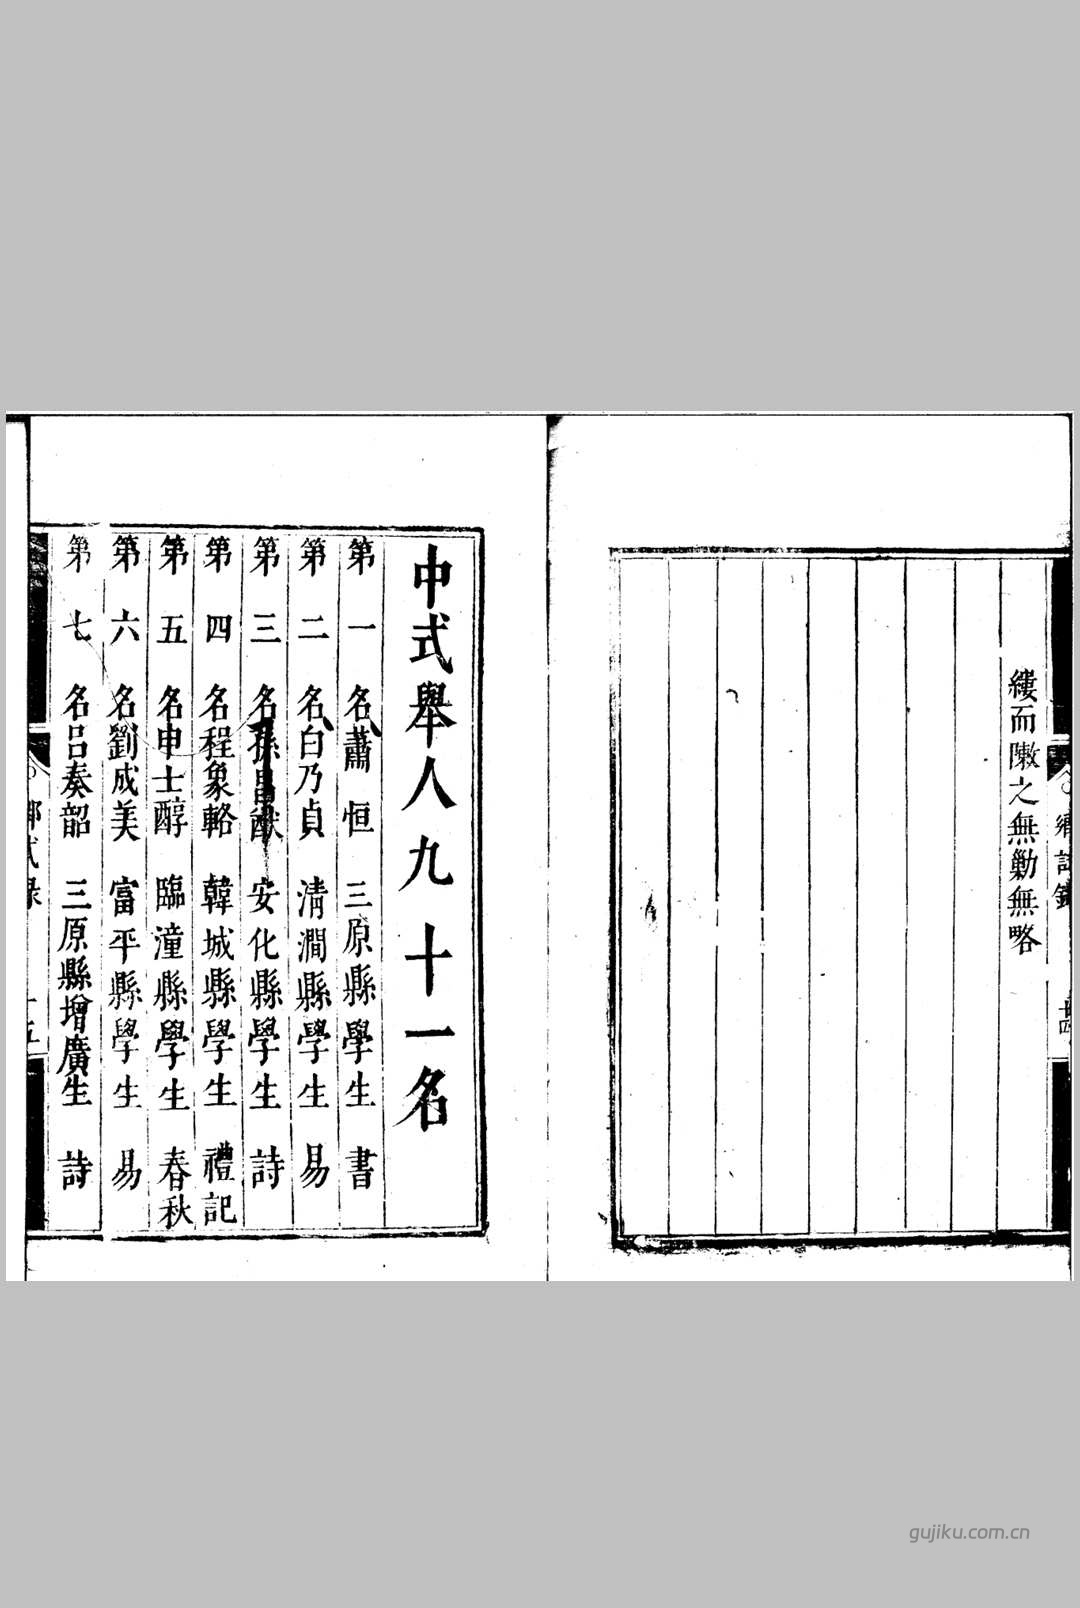 縷而陳之無勦無略
中式舉人九十一名
第一名蕭恒 三原縣學生 書
第二名白乃貞 清澗縣學生 易
第三名孫昌猷 安化縣學生 詩
第四名程象輅 韓城縣學生 禮記
第五名申士醇 臨潼縣學生 春秋
第六名劉成美 富平縣學生 易
第七名呂奏韶 三原縣增廣生 詩
gujiku.com.cn